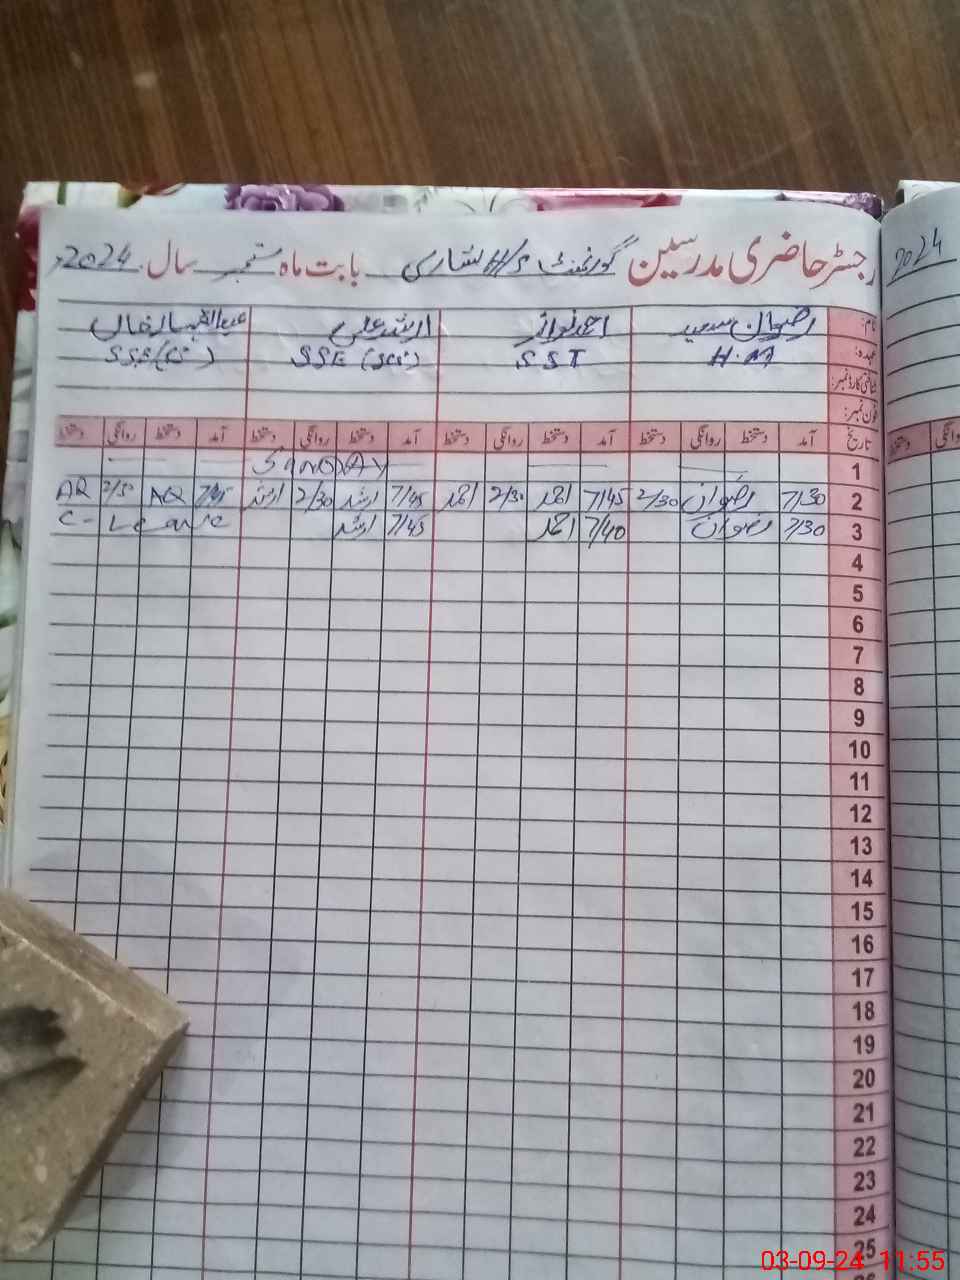 رجسٹر حاضری مدرسین گورنمنٹ H/S بابت ماہ ستمبر سال 2024ء
2024
نام: رضوان سعید احمد نواز ارشد علی
عہدہ: H.M SST SSE (Sci)
شناختی کارڈ نمبر:
فون نمبر:
تاریخ آمد دستخط روانگی دستخط آمد دستخط روانگی دستخط آمد دستخط روانگی دستخط آمد دستخط روانگی دستخط
1 SanDAy
2 7/30 رضوان 2/30 7/45 احمد 2/30 احمد 7/45 ارشد 2/30 ارشد 7/45 AQ AQ
3 7/30 رضوان 7/40 احمد 7/45 ارشد C-Leave
4
5
6
7
8
9
10
11
12
13
14
15
16
17
18
19
20
21
22
23
24
25
03-09-24 11:55